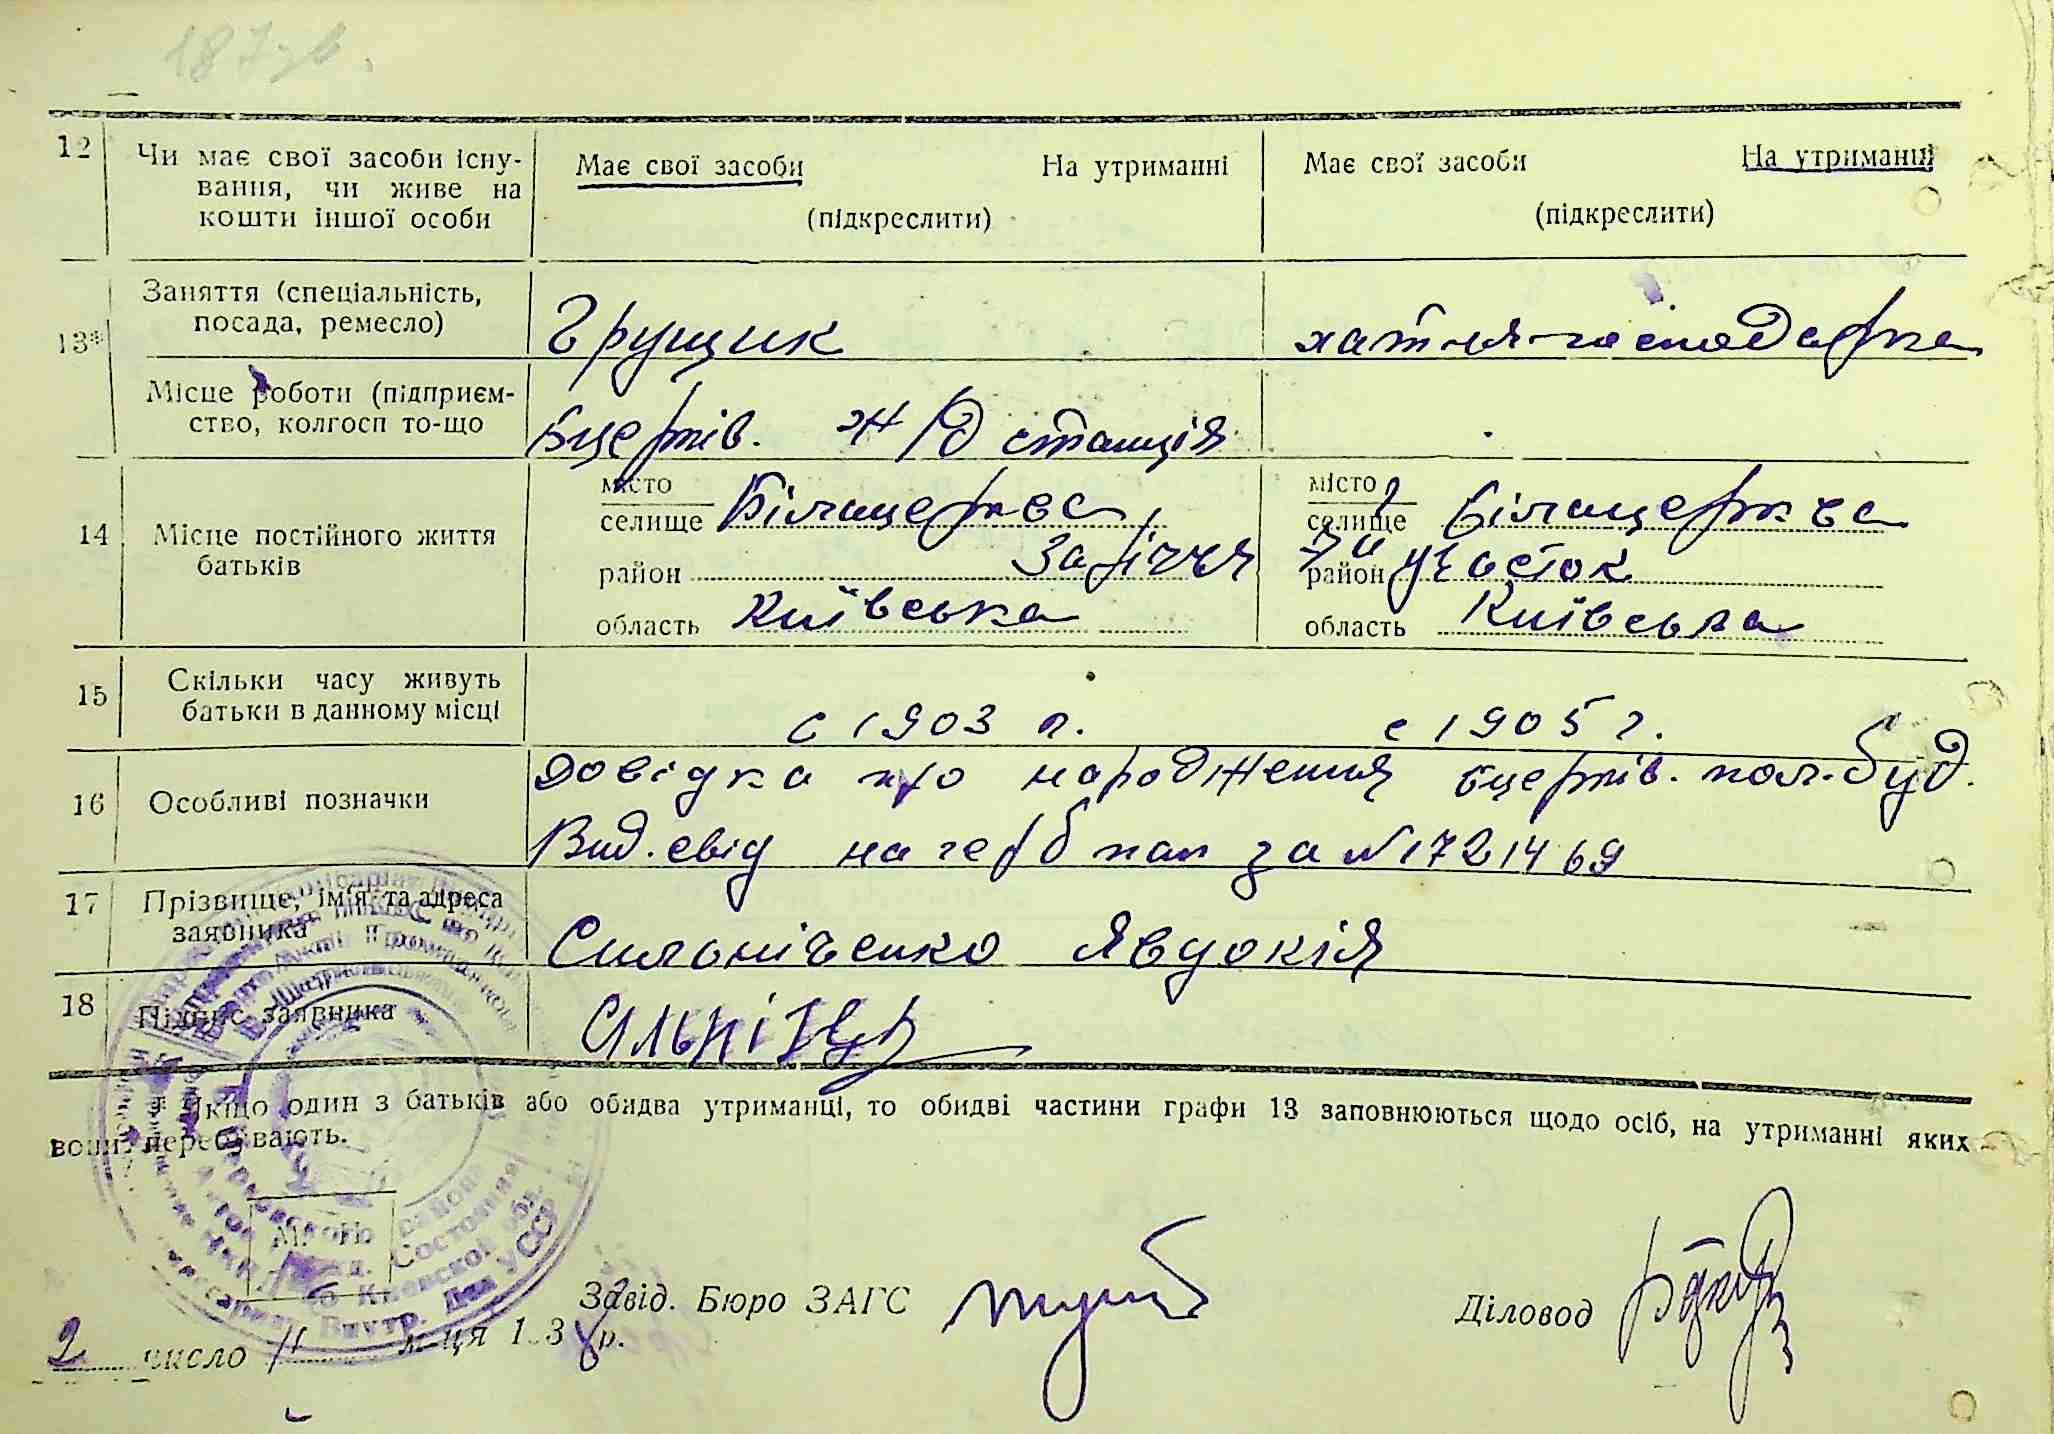 187зв.
12 Чи має свої засоби існу- Має свої засоби На утриманні Має свої засоби На утриманні
вання, чи живе на
кошти іншої особи (підкреслити) (підкреслити)
Заняття (спеціальність,
посада, ремесло) Грущик хатня-господарка
13*
Місце роботи (підприєм-
ство, колгосп то-що Бцерків. ж/д станція
місто місто
селище Білацерква, селище Білацерква
14 Місце постійного життя
батьків район Заріччя район участок
область Київська область Київська
15 Скільки часу живуть
батьки в данному місці с 1903 г. с 1905 г.
Довідка про народження бцерків. пол. буд.
16 Особливі позначки
Вид. свід на герб пап за №1721469
17 Прізвище, ім'я та адреса
заявника Сильніченко Явдокія
18 Підпис заявника
* Якщо один з батьків або обидва утриманці, то обидві частини графи 13 заповнюються щодо осіб, на утриманні яких
вони перебувають.
Завід. Бюро ЗАГС Діловод
2 число 11 м-ця 193 р.